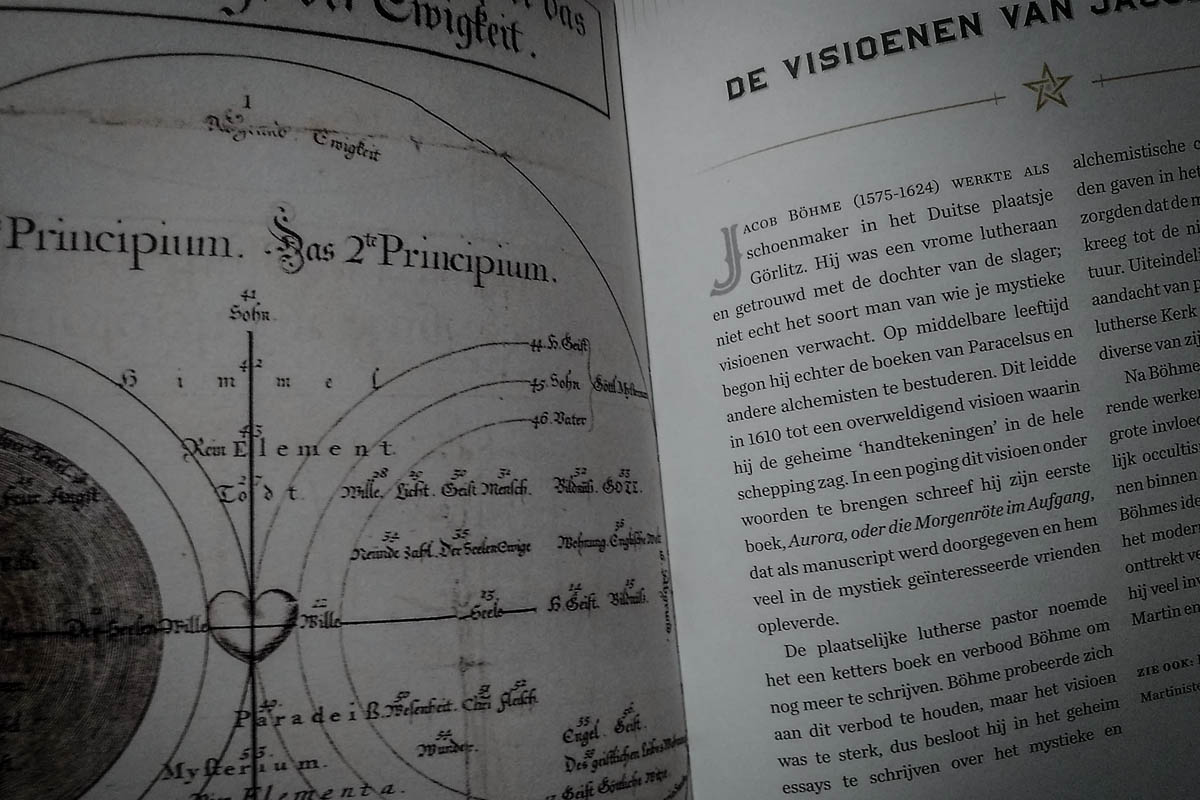 das
der Ewigkeit.
1
Ewigkeit
Principium. Das 2te Principium.
41
Sohn.
42
Himmel
44. H. Geist
45. Sohn
46. Vater
43
Rein Element.
27
Todt.
28 29 30 31 32 33
Wille. Licht. Geist Mensch. Bildniß. GOTT.
34 35 36
Zahl. Der Seelen Ewige
feuer Angst
Der Seelen Wille
22
Wille
23.
Seele
24 25
H. Geist. Bildniß.
49.
Paradeiß. Wesenheit. Chri Fleisch.
50 51 52
54
Wunder.
55 56
Engel. Geist.
53.
Mysterium.
Elementa.
Geist Göttliche
DE VISIOENEN VAN
JACOB BÖHME (1575-1624) WERKTE ALS
schoenmaker in het Duitse plaatsje
Görlitz. Hij was een vrome lutheraan
en getrouwd met de dochter van de slager;
niet echt het soort man van wie je mystieke
visioenen verwacht. Op middelbare leeftijd
begon hij echter de boeken van Paracelsus en
andere alchemisten te bestuderen. Dit leidde
in 1610 tot een overweldigend visioen waarin
hij de geheime ‘handtekeningen’ in de hele
schepping zag. In een poging dit visioen onder
woorden te brengen schreef hij zijn eerste
boek, Aurora, oder die Morgenröte im Aufgang,
dat als manuscript werd doorgegeven en hem
veel in de mystiek geïnteresseerde vrienden
opleverde.
De plaatselijke lutherse pastor noemde
het een ketters boek en verbood Böhme om
nog meer te schrijven. Böhme probeerde zich
aan dit verbod te houden, maar het visioen
was te sterk, dus besloot hij in het geheim
essays te schrijven over het mystieke en
alchemistische
den gaven in het
zorgden dat de
kreeg tot de
tuur.
aandacht van
lutherse Kerk
diverse van
Na Böhme
rende
grote
lijk
nen binnen
Böhmes
het
onttrekt
hij veel
Martin en
ZIE OOK: